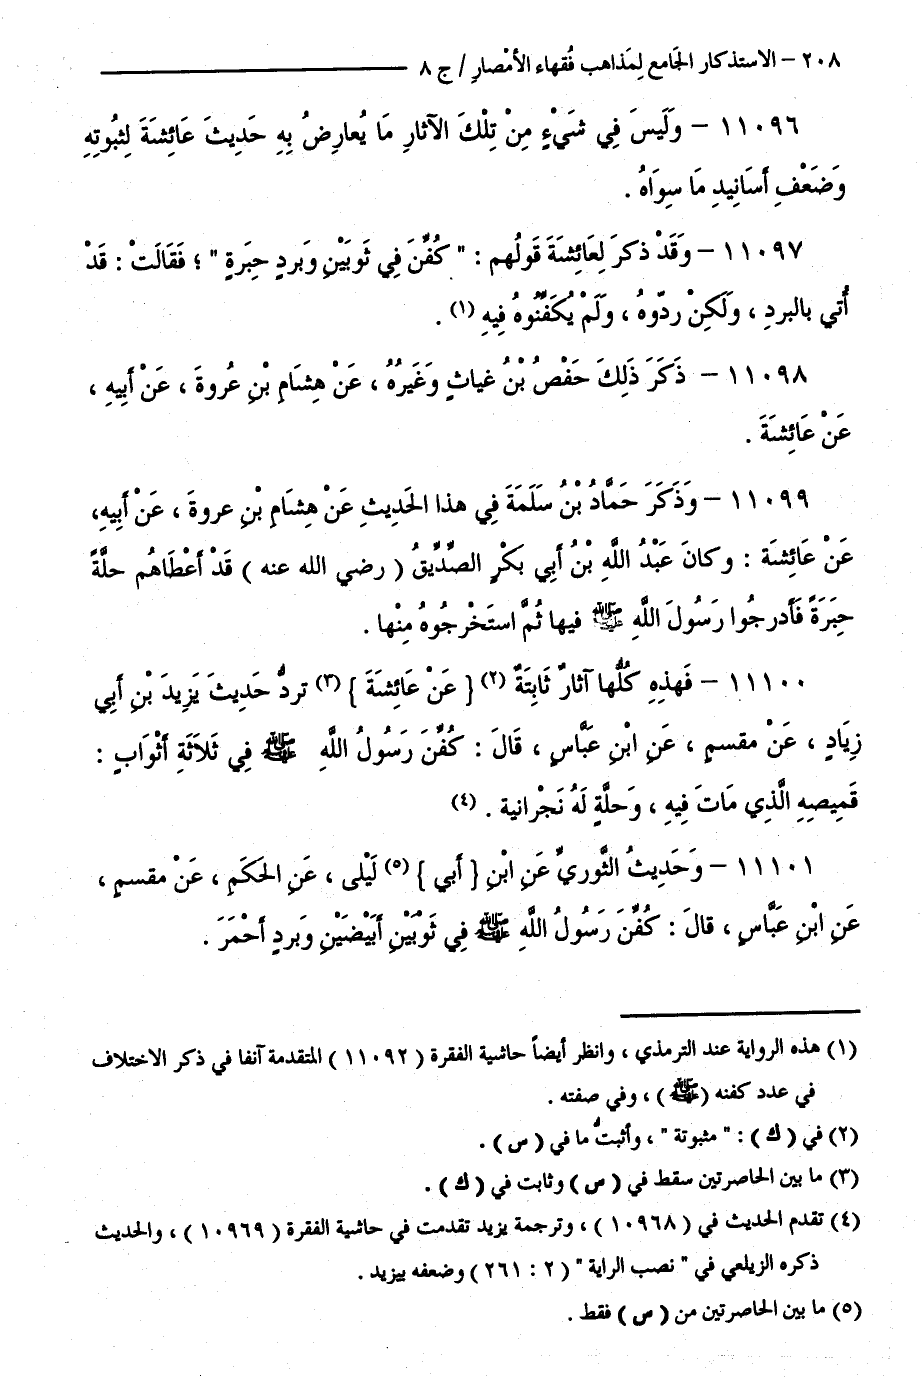 ٢٠٨ – الاستذكار الجَامع لِمَذاهب فُقهاء الأمْصارِ / ج ٨
١١٠٩٦ – وَلَيسَ فِي شَيْءٍ مِنْ تِلْكَ الآثارِ مَا يُعارِضُ بِهِ حَدِيثَ عَائِشَةَ لِثبُوتِهِ
وَضَعْفِ أَسَانِيدِ مَا سِوَاهُ .
١١٠٩٧ – وَقَدْ ذكرَ لِعَائِشَةَ قَولُهم : " كُفِّنَ فِي ثَوبَيْنِ وَبردِ حِبَرةٍ " ؛ فَقَالَتْ : قَدْ
أُتي بالبردِ ، وَلَكِنْ ردّوهُ ، وَلَمْ يُكَفِّنُوهُ فِيهِ (١) .
١١٠٩٨ – ذَكَرَ ذَلِكَ حَفْصُ بْنُ غياثٍ وَغَيرُهُ ، عَنْ هِشَامِ بْنِ عُروةَ ، عَنْ أَبِيهِ ،
عَنْ عَائِشَةَ .
١١٠٩٩ – وَذَكَرَ حَمَّادُ بْنُ سَلَمَةَ فِي هذا الحَدِيثِ عَنْ هِشامِ بْنِ عروةَ ، عَنْ أَبيهِ،
عَنْ عَائِشَة : وكانَ عَبْدُ اللَّهِ بْنُ أَبِي بَكْرٍ الصِّدِّيقُ ( رضي الله عنه ) قَدْ أَعْطَاهُم حلَّةً
حِبَرَةً فَأَدرجُوا رَسُولَ اللَّهِ ﷺ فيها ثُمَّ استَخْرجُوهُ مِنْها .
١١١٠٠ – فَهذِهِ كُلُّها آثارٌ ثَابِتَةٌ (٢) { عَنْ عَائِشَةَ } (٣) تردُّ حَدِيثَ يَزِيدَ بْنِ أَبي
زِيَادٍ ، عَنْ مقسمٍ ، عَنِ ابْنِ عَبَّاسٍ ، قَالَ : كُفِّنَ رَسُولُ اللَّهِ ﷺ فِي ثَلَاثَةِ أَثْوَابٍ :
قَمِيصِهِ الَّذِي مَاتَ فِيهِ ، وَحلَّةٍ لَهُ نَجْرانية . (٤)
١١١٠١ – وَحَدِيثُ الثَّوريِّ عَنِ ابْنِ { أَبي } (٥) لَيْلى ، عَنِ الحكَمِ ، عَنْ مقسمٍ ،
عَنِ ابْنِ عَبَّاسٍ ، قالَ : كُفِّنَ رَسُولُ اللَّهِ ﷺ فِي ثَوْبَيْنِ أَبْيَضَيْنِ وَبردٍ أَحْمَرَ .
(١) هذه الرواية عند الترمذي ، وانظر أيضاً حاشية الفقرة ( ١١٠٩٢ ) المتقدمة آنفا في ذكر الاختلاف
في عدد كفنه (ﷺ) ، وفي صفته .
(٢) في ( ك ) : " مثبوتة " ، وأثبتُّ ما في ( س ) .
(٣) ما بين الحاصرتين سقط في ( س ) وثابت في ( ك ) .
(٤) تقدم الحديث في ( ١٠٩٦٨ ) ، وترجمة يزيد تقدمت في حاشية الفقرة ( ١٠٩٦٩ ) ، والحديث
ذكره الزيلعي في " نصب الراية " ( ٢ : ٢٦١ ) وضعفه بيزيد .
(٥) ما بين الحاصرتين من ( س ) فقط .